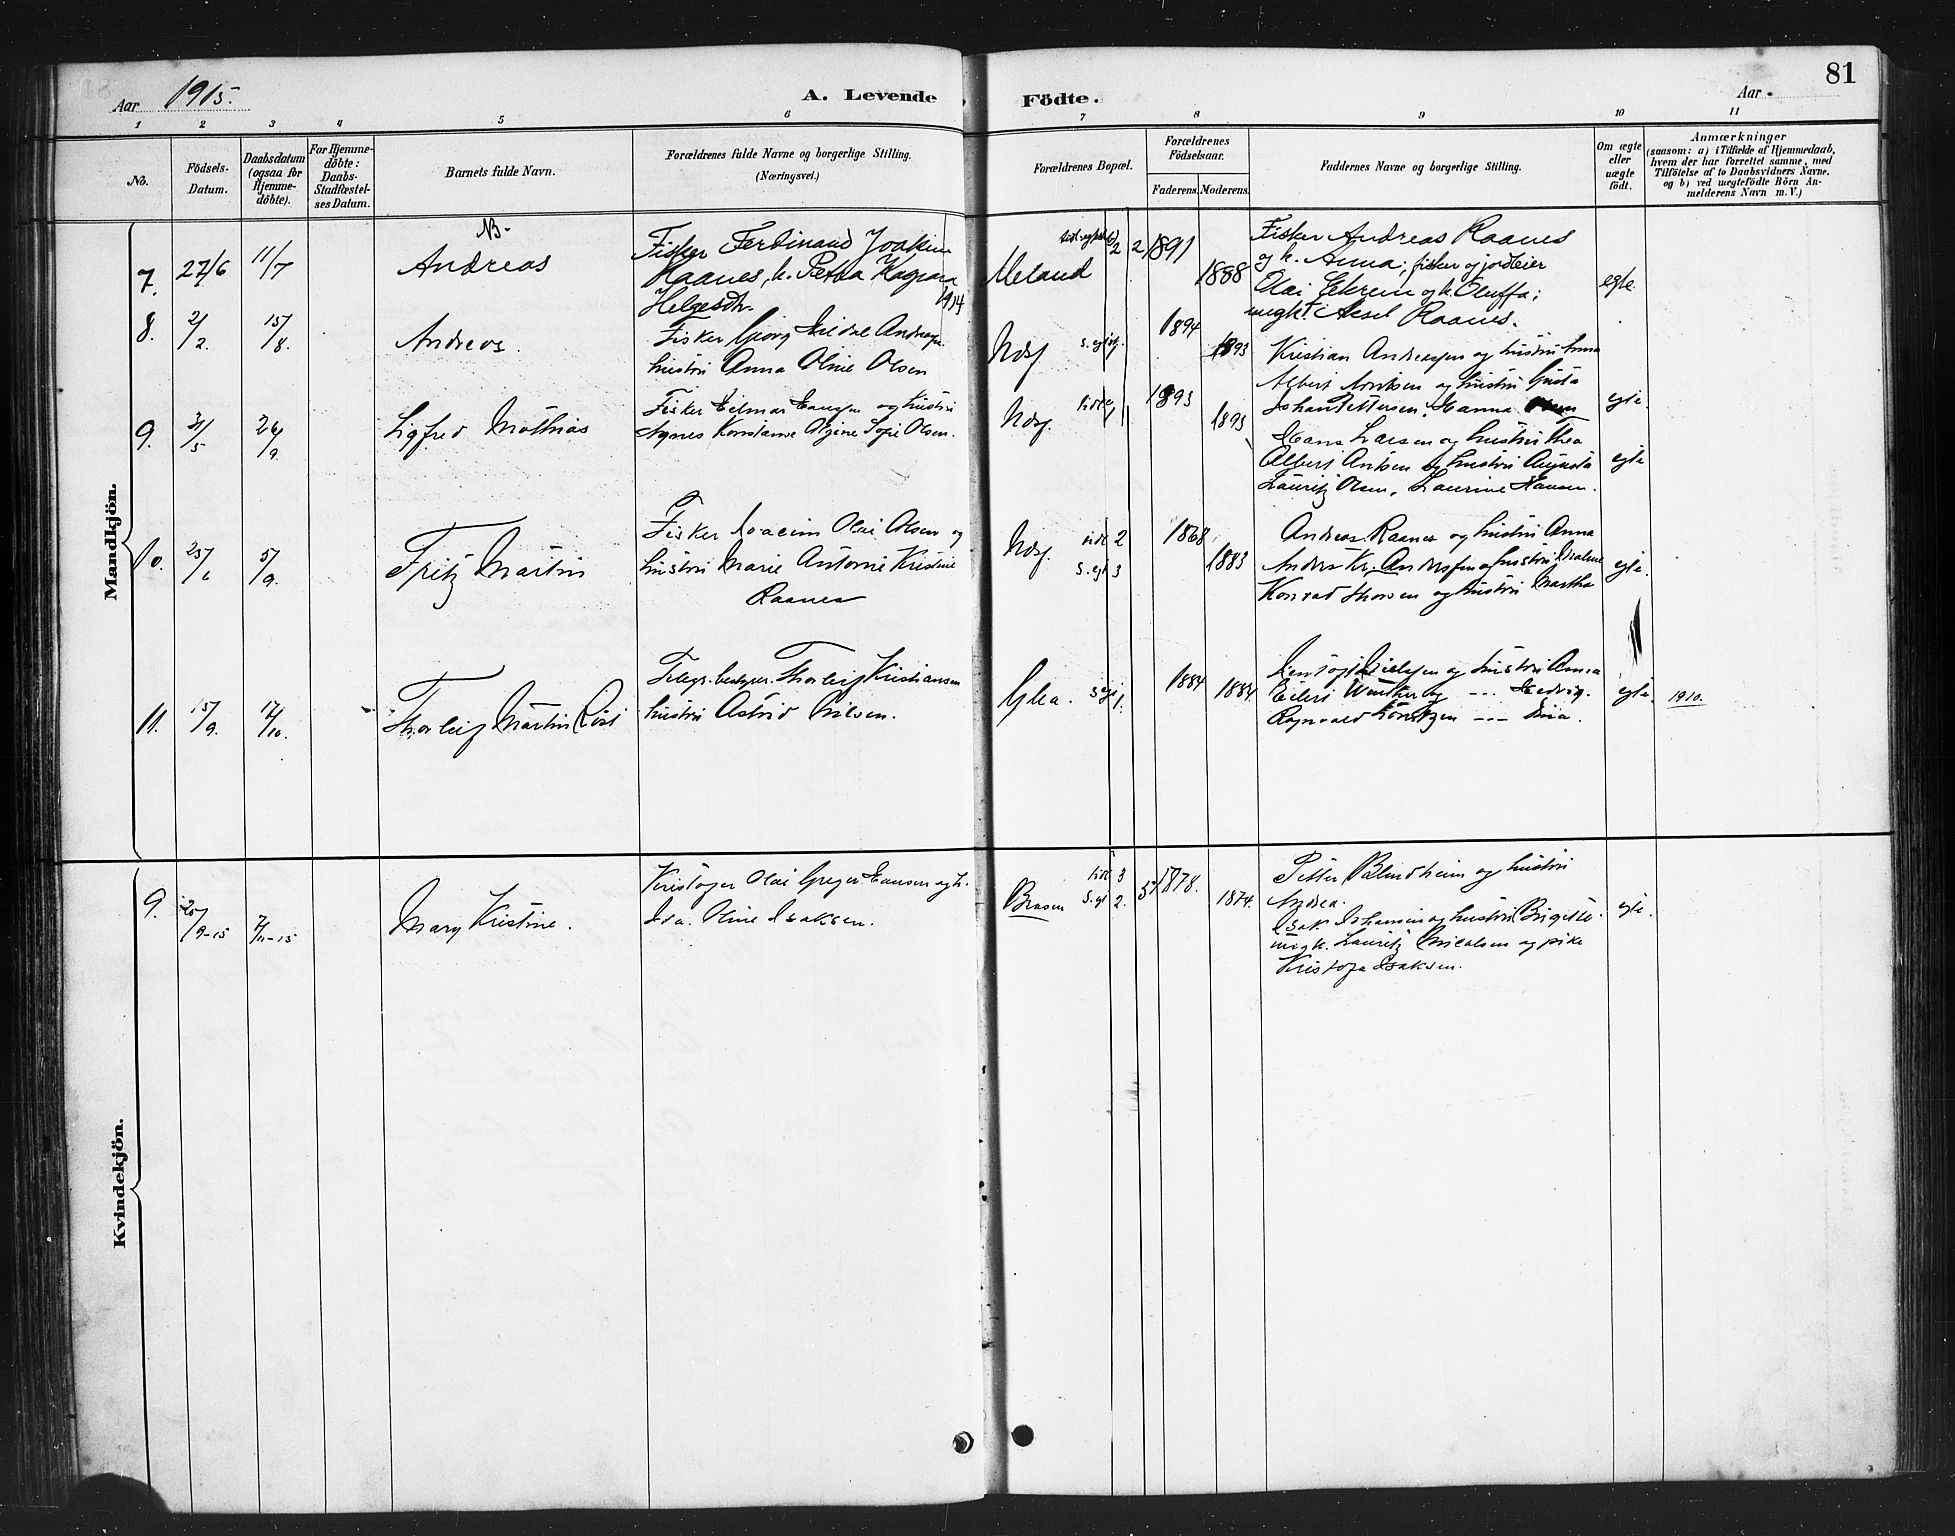 Aar 1915.
A. Levende Födte.
Aar
81
1 2 3 4 5 6 7 8 9 10 11
No.
Födsels-Datum.
Daabsdatum (ogsaa for Hjemme-döbte).
For Hjemme-döbte: Daabs-Stadfæstel-ses Datum.
Barnets fulde Navn.
Forældrenes fulde Navne og borgerlige Stilling.
(Næringsvei.)
Forældrenes Bopæl.
Forældrenes Födselsaar.
Faderens. Moderens.
Faddernes Navne og borgerlige Stilling.
Om ægte eller uægte födt.
Anmærkninger
(saasom: a) i Tilfælde af Hjemmedaab, hvem der har forrettet samme, med Tilföielse af to Daabsvidners Navne, og b) ved uægtefödte Börn An-melderens Navn m. V.)
Mandkjön.
7. 27/6 11/7
NB.
Andreas
Fisker Ferdinand Joakim
Raanes, h. Petra
Helgesdtr. 1914
Meland
2 2 1891 1888
Fisker Andreas Raanes
og h. Anna; fisker og jordeier
Olai Ekrem og h. Oluffa;
Raanes.
egte.
8. 2/2. 15/8.
Andreas.
Fisker Georg
hustru Anna Oline Olsen
Ndsj
1894 1893
Kristian Andreassen og hustru Anna
Albert og hustru
Johan Pettersen. Hanna
egte.
9. 31/5 26/9.
Sigfred Mathias
Fisker Hansen og hustru
Agnes Konstanse Sofie Olsen.
Ndsj.
1 1893 1893
Hans Larsen og hustru Thea
Albert og hustru Augusta
Lauritz Olsen, Laurine Hansen.
egte
10. 25/6 5/9.
Fritz Martin
Fisker Joacim Olai Olsen og
hustru Marie Antonie Kristine
Raanes
Ndsj.
2
3
1868 1883
Andreas Raanes og hustru Anna
Anders Kr. Anderssen og hustru
Konrad og hustru Martha
egte.
11. 15/9. 17/10.
Thorleif Martin Röst
Telegr. bestyrer Thorleif Kristiansen
hustru Astrid Nilsen.
Glea.
1. 1884 1884.
og hustru Anna
og --- Hedvig.
Ragnvald ---
egte.
1910.
Kvindekjön.
9. 25/9-15 7/11-15
Mary Kristine.
Kristofer Olai Greger Hansen og h.
Ida Oline Isaksen.
Brasen
3
2.
57 1878. 1874.
Petter Blindheim og hustru
Andrea.
Isak Johansen og hustru Brigitte.
ungk. Lauritz Nicolaisen og pike
Kristofa Isaksen.
egte.